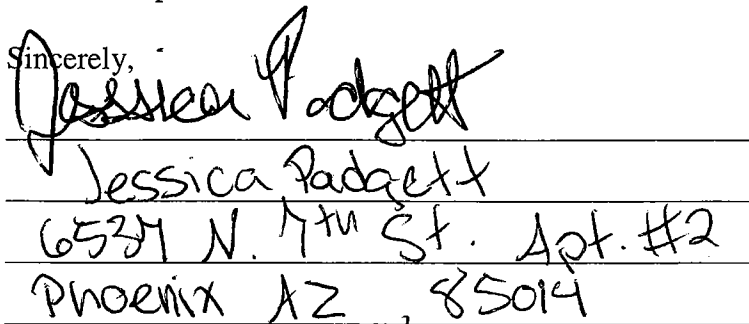 Sincerely,
Jessica Padgett
Jessica Padgett
6537 N. 7th St. Apt. #2
Phoenix AZ, 85014